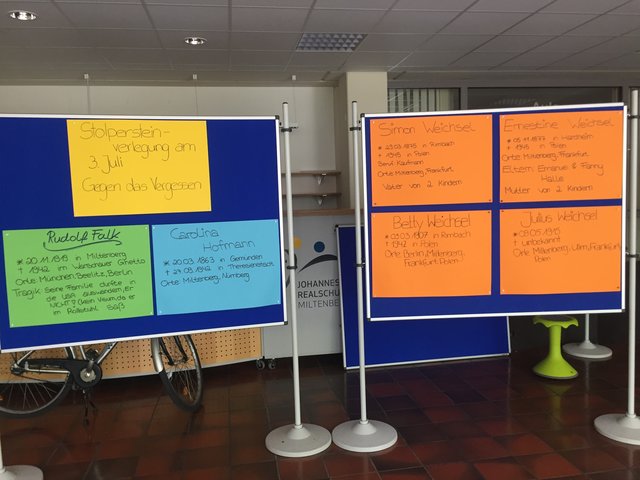 Stolperstein-
verlegung am
3. Juli
Gegen das Vergessen
Rudolf Falk
* 20.11.1919 in Miltenberg
† 1942 im Warschauer Ghetto
Orte: München, Beelitz, Berlin
Tragik: Seine Familie durfte in
die USA auswandern, er
NICHT! (kein Visum, da er
im Rollstuhl saß)
Carolina
Hofmann
* 20.03.1863 in Gemünden
Orte: Miltenberg, Nürnberg
JOHANNES
REALSCHU
MILTENBE
Simon Weichsel
† 1945 in Polen
Beruf: Kaufmann
Orte: Miltenberg, Frankfurt
Vater von 2 Kindern
Ernestine Weichsel
* 05.11.1877 in Hardheim
† 1945 in Polen
Orte: Miltenberg, Frankfurt
Eltern: Emanuel & Fanny
Mutter von 2 Kindern
Betty Weichsel
* 03.03.1907 in Rimbach
† 1942 in Polen
Orte: Berlin, Miltenberg,
Frankfurt, Polen
Julius Weichsel
† unbekannt
Orte: Miltenberg, Ulm, Frankfurt,
Polen